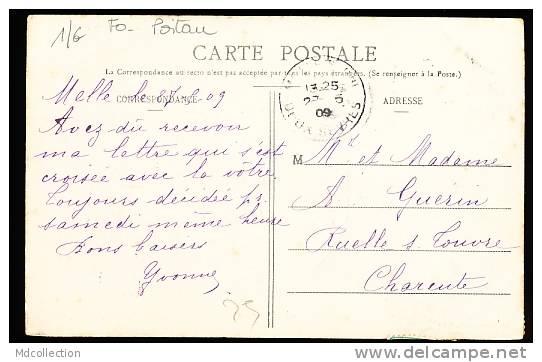 1/6 Fo- Poitou
CARTE POSTALE
La Correspondance au recto n'est pas acceptée par tous les pays étrangers. (Se renseigner à la Poste.)
CORRESPONDANCE
ADRESSE
Melle le 27 09
Avez dû recevoir
ma lettre qui s'est
croisée avec la vôtre
Toujours décidée pr
samedi même heure
Bons baisers
Yvonne
13 25
09
DEUX SEVRES
M
Mr et Madame
A Guérin
Ruelle s Touvre
Charente
25
MDcollection
http://www.delcampe.net